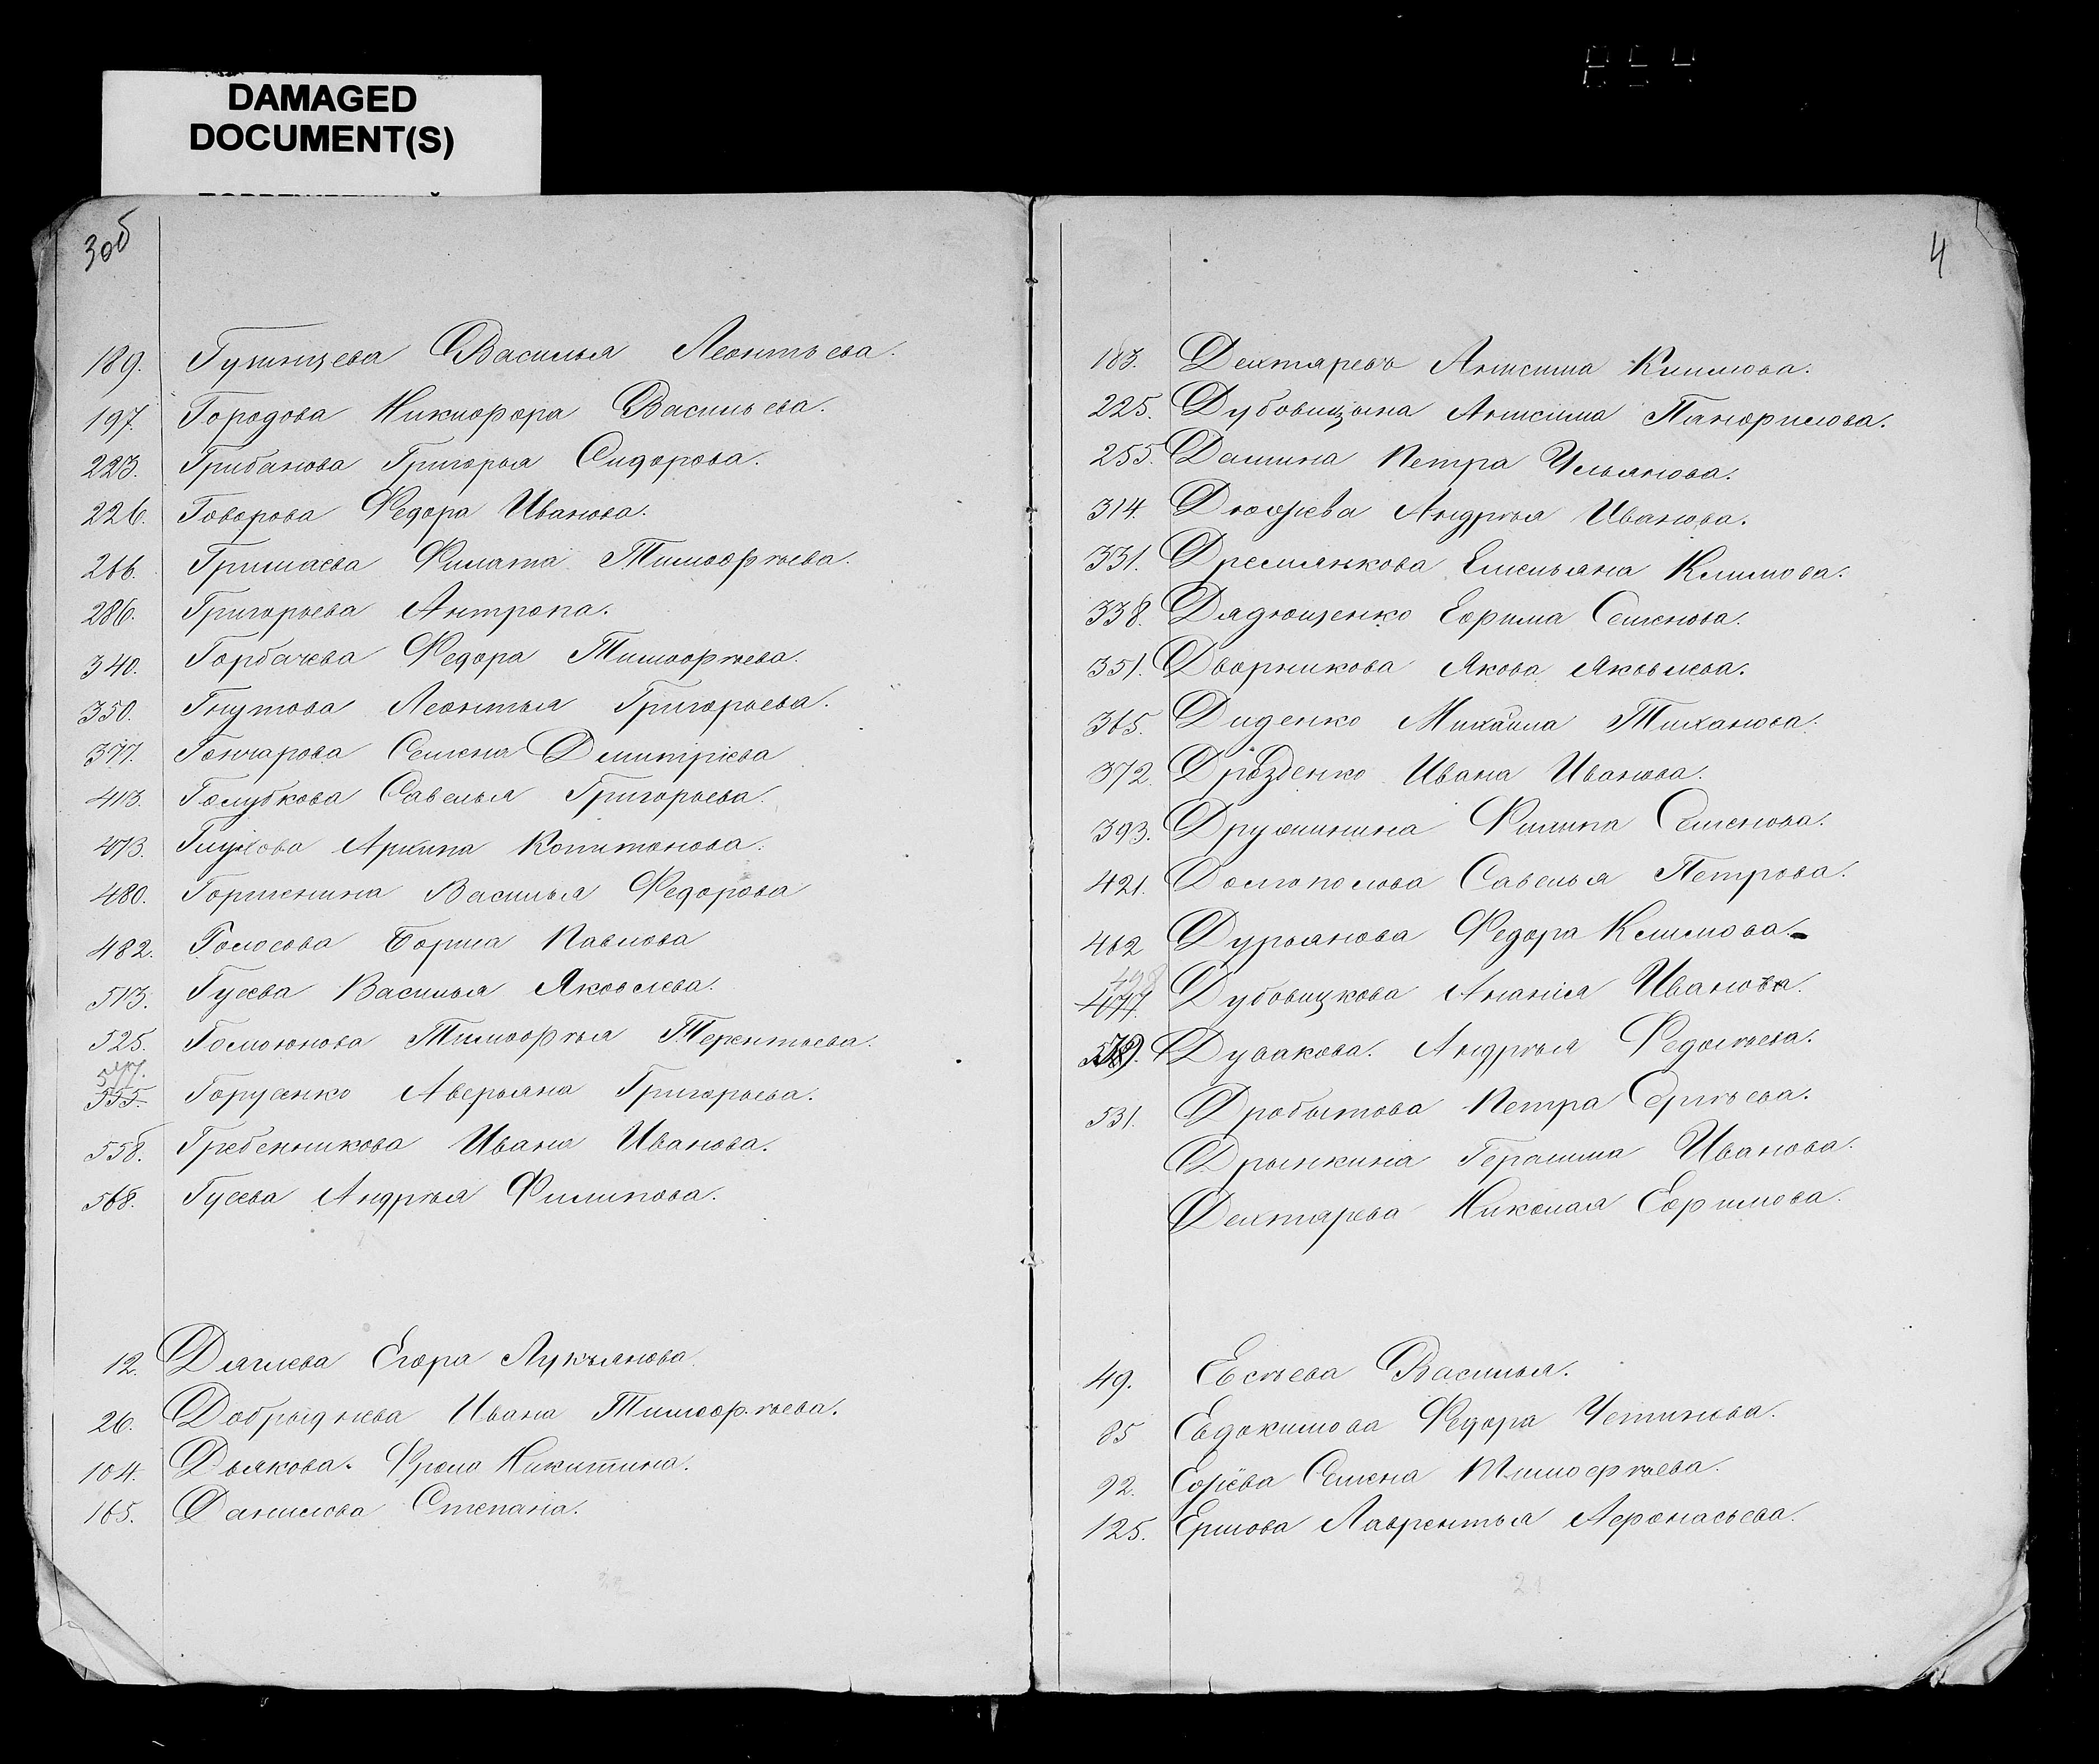 854
DAMAGED
DOCUMENT(S)
3об
189. Василья Леонтьева.
197. Городова Никиофора Васильева.
223. Грибанова Григорья Сидорова.
226. Говорова Федора Иванова.
266. Гришаева Филата Тимоофѣева.
286. Григорьева Антропа.
340. Горбачева Федора Тимоофѣева.
350. Гнутова Леонтья Григорьева.
377. Гончарова Семена Дмитріева
413. Голубкова Савелья Григорьева.
473. Глухова Архипа Копитонова.
480. Горшенина Василья Федорова
482. Голосова Бориса Павлова
513. Гусева Василья Яковлева.
525. Тимоофѣя Терентьева.
577.
555. Горусенко Аверьяна Григорьева.
558. Гребенникова Ивана Иванова.
568. Гусева Андрѣя Филипова.
12. Дягилева Егора Лукьянова.
26. Добрыднева Ивана Тимоофѣева.
104. Дьякова. Фрола Никитина.
165. Данилова Степана.
4
183. Дехтяревъ Анисима Климова.
225. Дубовицына Анисима Панфилова.
255. Дашина Петра Ульянова.
314. Андрѣя Иванова.
331. Дремлянкова Емельяна Климова.
338. Дядющенко Ефрима Семенова.
351. Дворникова Якова Яковлева.
365. Диденко Михайла Тиханова.
372. Дрозденко Ивана Иванова.
393. Дружинина Филипа Семенова.
421. Долгополова Савелья Петрова.
462 Дурьянова Федора Климова.
498
477. Дубовицкова Ананія Иванова.
Дувакова. Андрѣя Федосѣева.
531. Дробытова Петра Сергѣева.
Дрынкина Герасима Иванова.
Дехтярева Николая Ефримова.
49. Евсѣева Василья.
85 Евдокимова Федора Устинова.
92. Семена Тимоефѣева.
125. Ершова Лаврентья Аефонасьева.